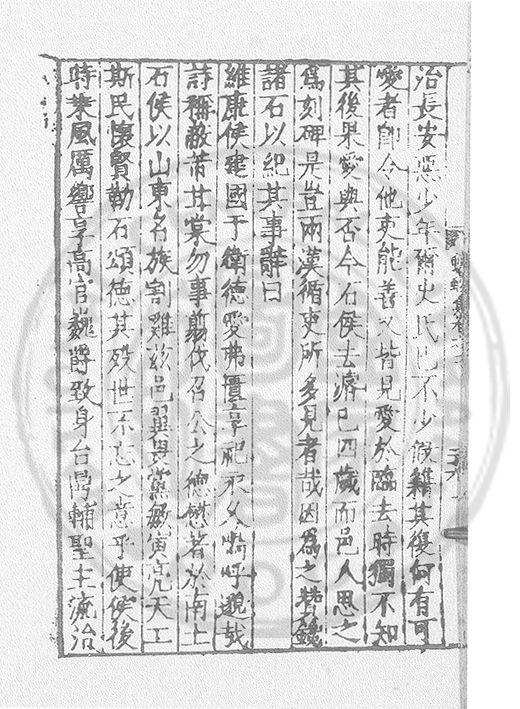 治長安惡少年爾史氏已不少假籍其後何有可
愛者即令他吏能善之皆見愛於臨去時獨不知
其後果愛與否今石侯去濬已四歲而邑人思之
爲刻碑是豈兩漢循吏所多見者哉因爲之
諸石以紀其事辭曰
維康侯建國于衛德愛弗享祀永久嗚呼邈哉
詩稱蔽芾甘棠勿事翦伐召公之德懋著於南土
石侯以山東名族割雞茲邑翼翼黨寅亮天工
斯民懷賢勒石頌德其歿世不忘之意乎使侯後
時乘風厲響享高官巍爵致身台鼎輔聖主流治